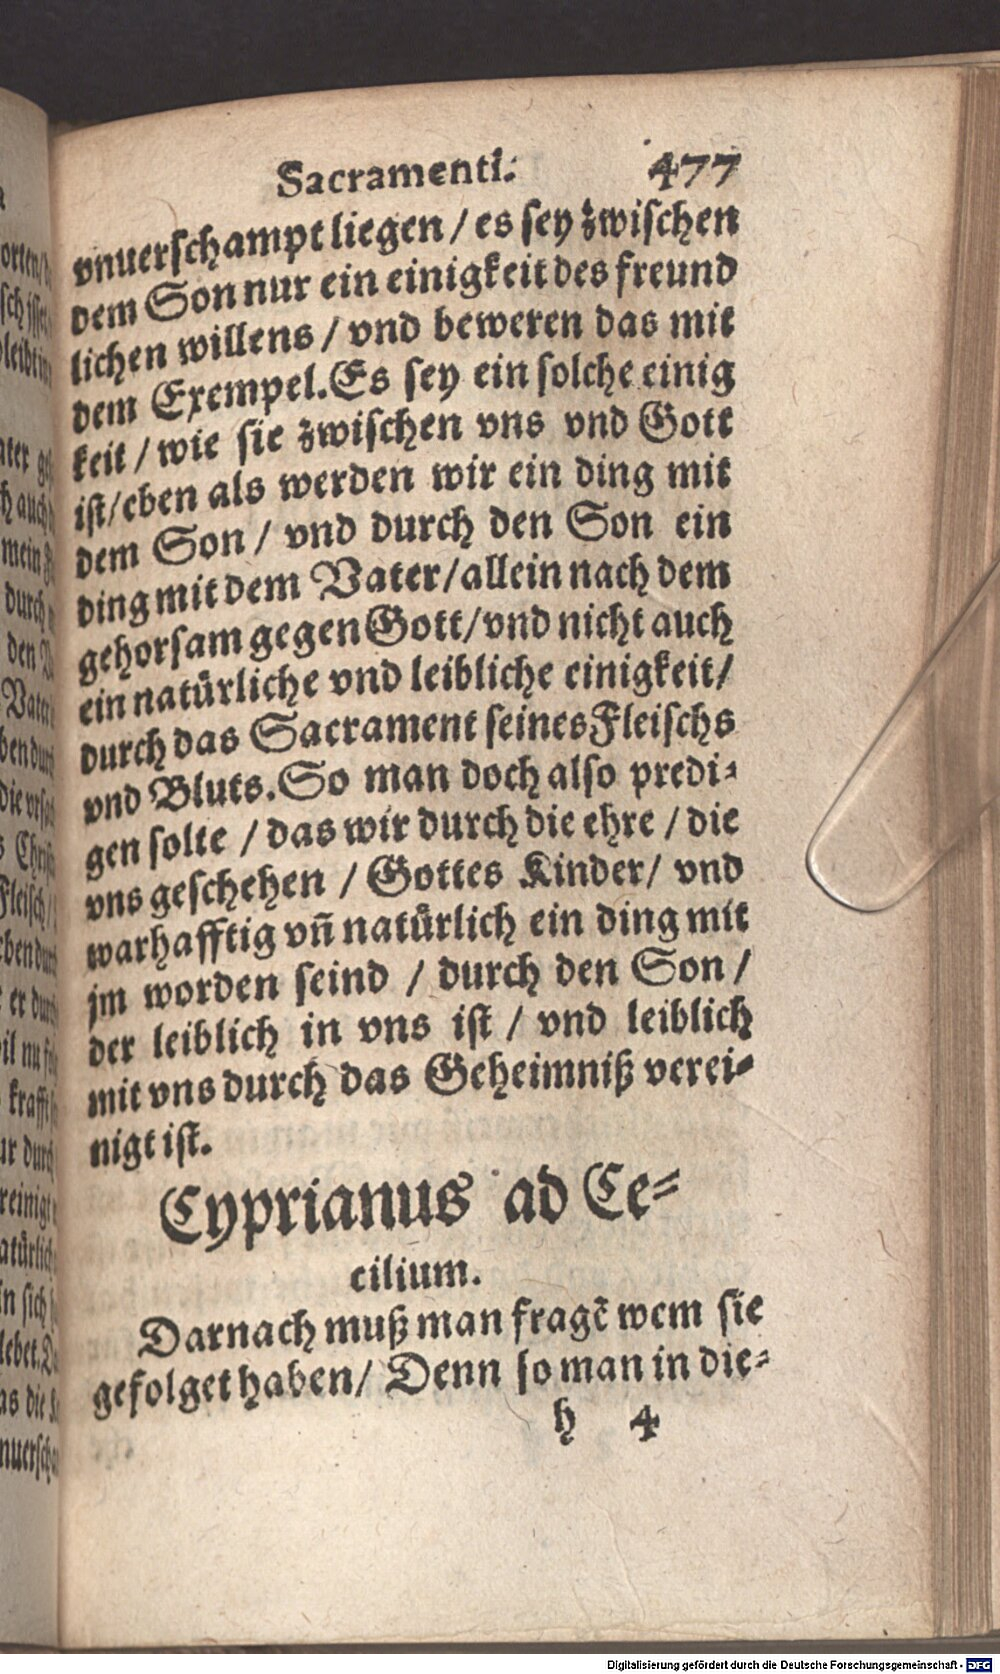 Sacramenti. 477
vnuerschampt liegen / es sey zwischen
dem Son nur ein einigkeit des freund
lichen willens / vnd beweren das mit
dem Exempel. Es sey ein solche einig
keit / wie sie zwischen vns vnd Gott
ist / eben als werden wir ein ding mit
dem Son / vnd durch den Son ein
ding mit dem Vater / allein nach dem
gehorsam gegen Gott / vnd nicht auch
ein natürliche vnd leibliche einigkeit /
durch das Sacrament seines Fleischs
vnd Bluts. So man doch also predi-
gen solte / das wir durch die ehre / die
vns geschehen / Gottes Kinder / vnd
warhafftig vñ natürlich ein ding mit
jm worden seind / durch den Son /
der leiblich in vns ist / vnd leiblich
mit vns durch das Geheimniß verei-
nigt ist.
Cyprianus ad Ce-
cilium.
Darnach muß man fragē wem sie
gefolget haben / Denn so man in die-
h 4
Digitalisierung gefördert durch die Deutsche Forschungsgemeinschaft - DFG